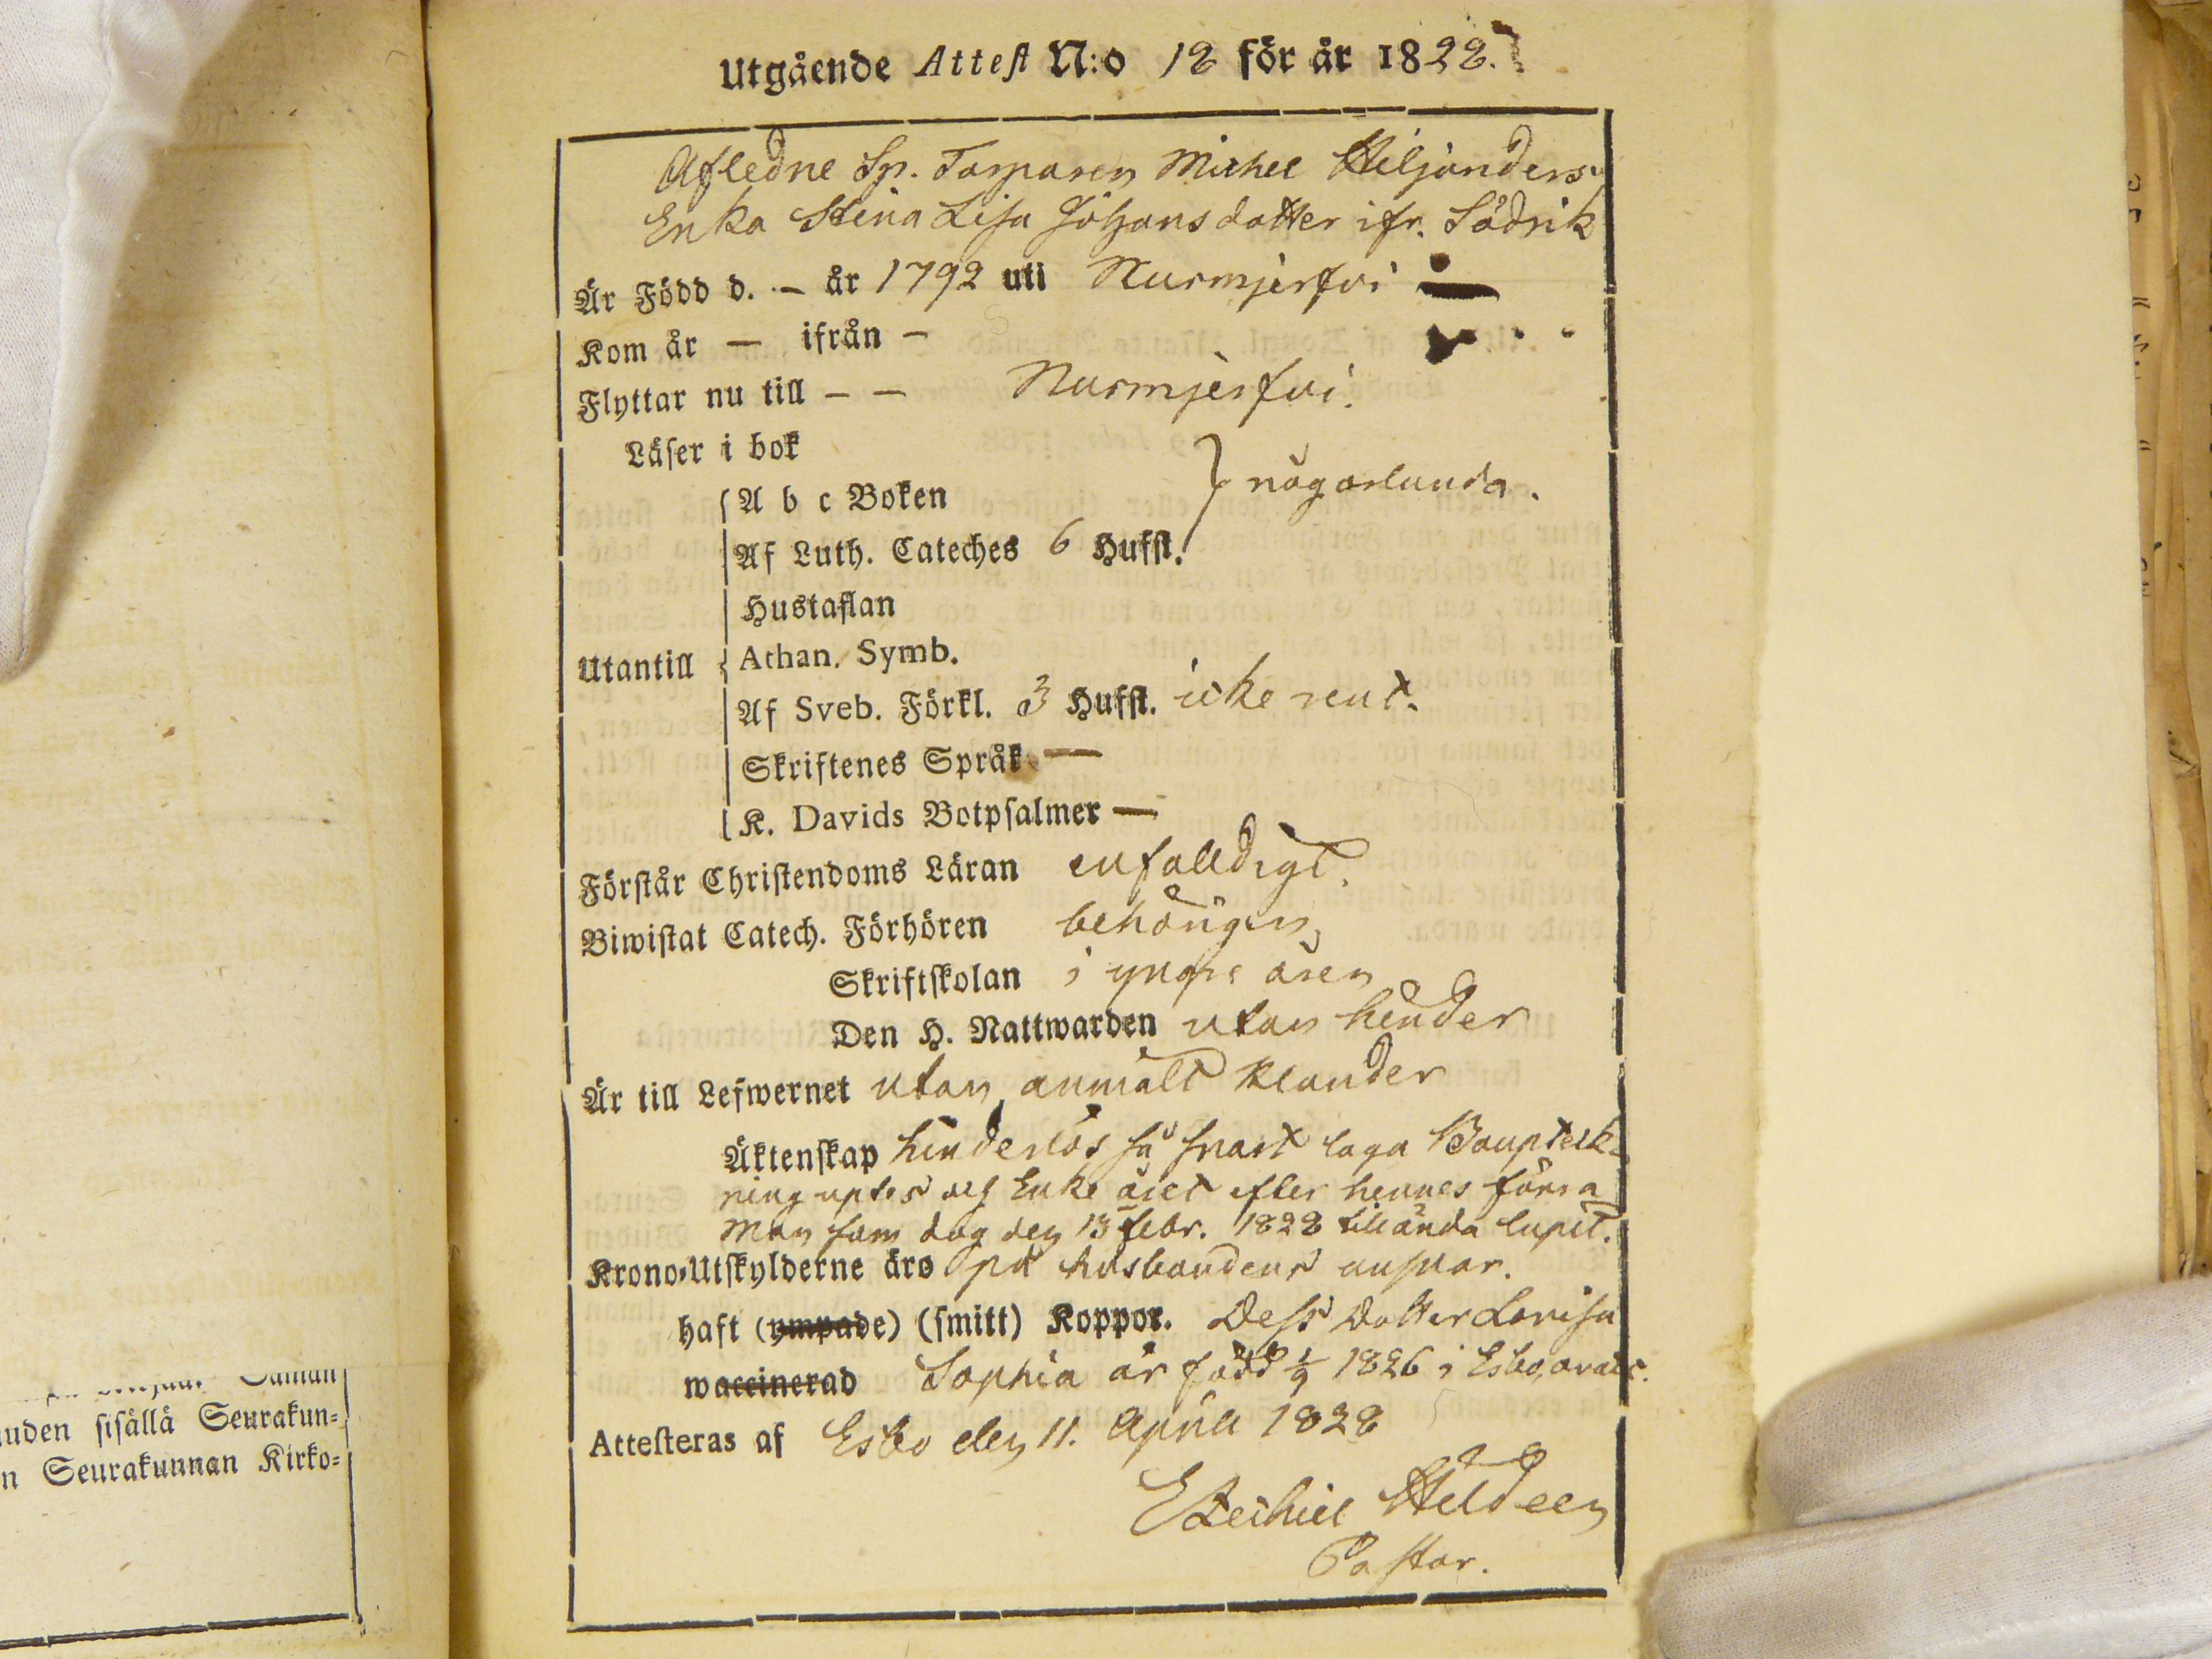 Utgående Attest N:o 18 för år 1828.
Afledne Sp. Torparen Michel Hiljanders
Enka Stina Lisa Johansdotter ifr. Södrik
Är Född d. — år 1792 uti Nurmjerfvi
Kom år — ifrån —
Flyttar nu till — — Nurmjerfvi.
Läser i bok
A b c Boken
någorlunda.
Af Luth. Cateches 6 Hufst.
Hustaflan
Utantill Athan. Symb.
Af Sveb. Förkl. 3 Hufst. icke rent.
Skriftenes Språk —
K. Davids Botpsalmer —
Förstår Christendoms Läran enfalldigt.
Biwistat Catech. Förhören behörigen,
Skriftskolan i yngre åren
Den H. Nattwarden utan hinder
Är till Lefwernet utan anmält klander
Äktenskap hinderlös så snart laga Boupteck-
ning uptes och Enke året efter hennes förra
Man som dog den 13 febr. 1828 tillända lupit.
Krono-Utskylderne äro på husbondens ansvar.
haft (ympade) (smitt) Koppor. Dess Dotter Lovisa
waccinerad Sophia är född 1/9 1826 i Esbo, ovacc.
Attesteras af Esbo den 11. April 1828
Ezechiel Hildeen
Pastor.
uden sisällä Seurakun=
n Seurakunnan Kirko=